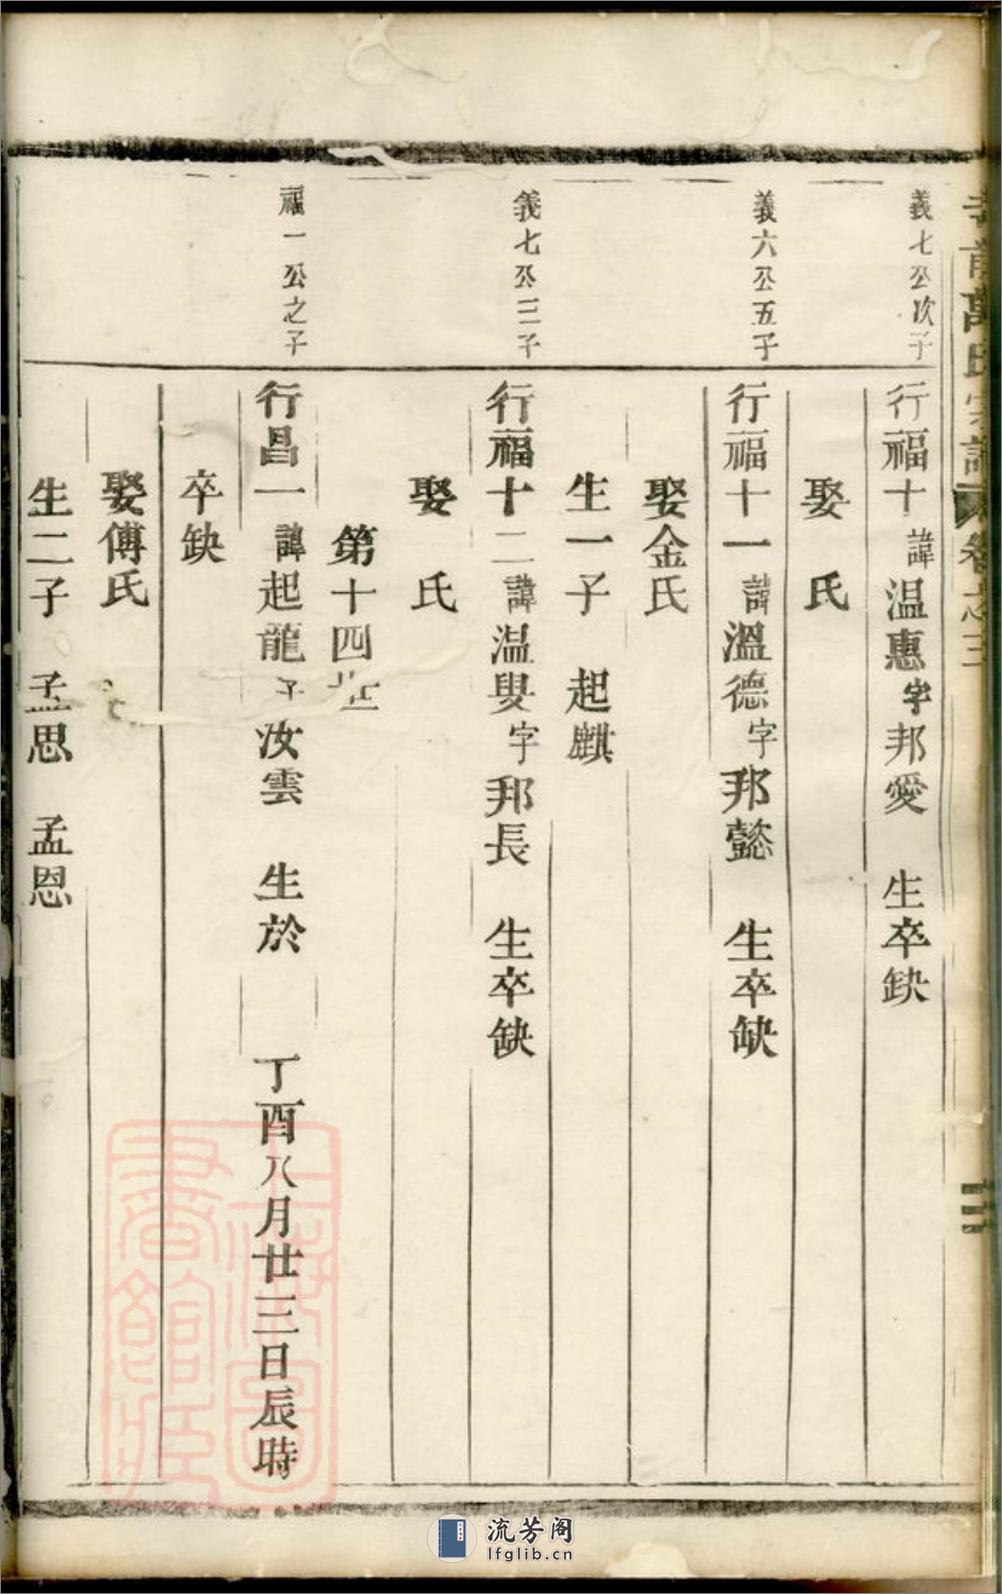 萬氏宗譜 卷之三
義七公次子
行福十諱温惠字邦愛 生卒缺
娶 氏
義六公五子
行福十一諱溫德字邦懿 生卒缺
娶金氏
生一子 起麒
義七公三子
行福十二諱温叟字邦長 生卒缺
娶 氏
第十四世
福一公之子
行昌一諱起龍字汝雲 生於 丁酉八月廿三日辰時
卒缺
娶傅氏
生二子 孟思 孟恩
上海圖書館藏
流芳阁
lfglib.cn